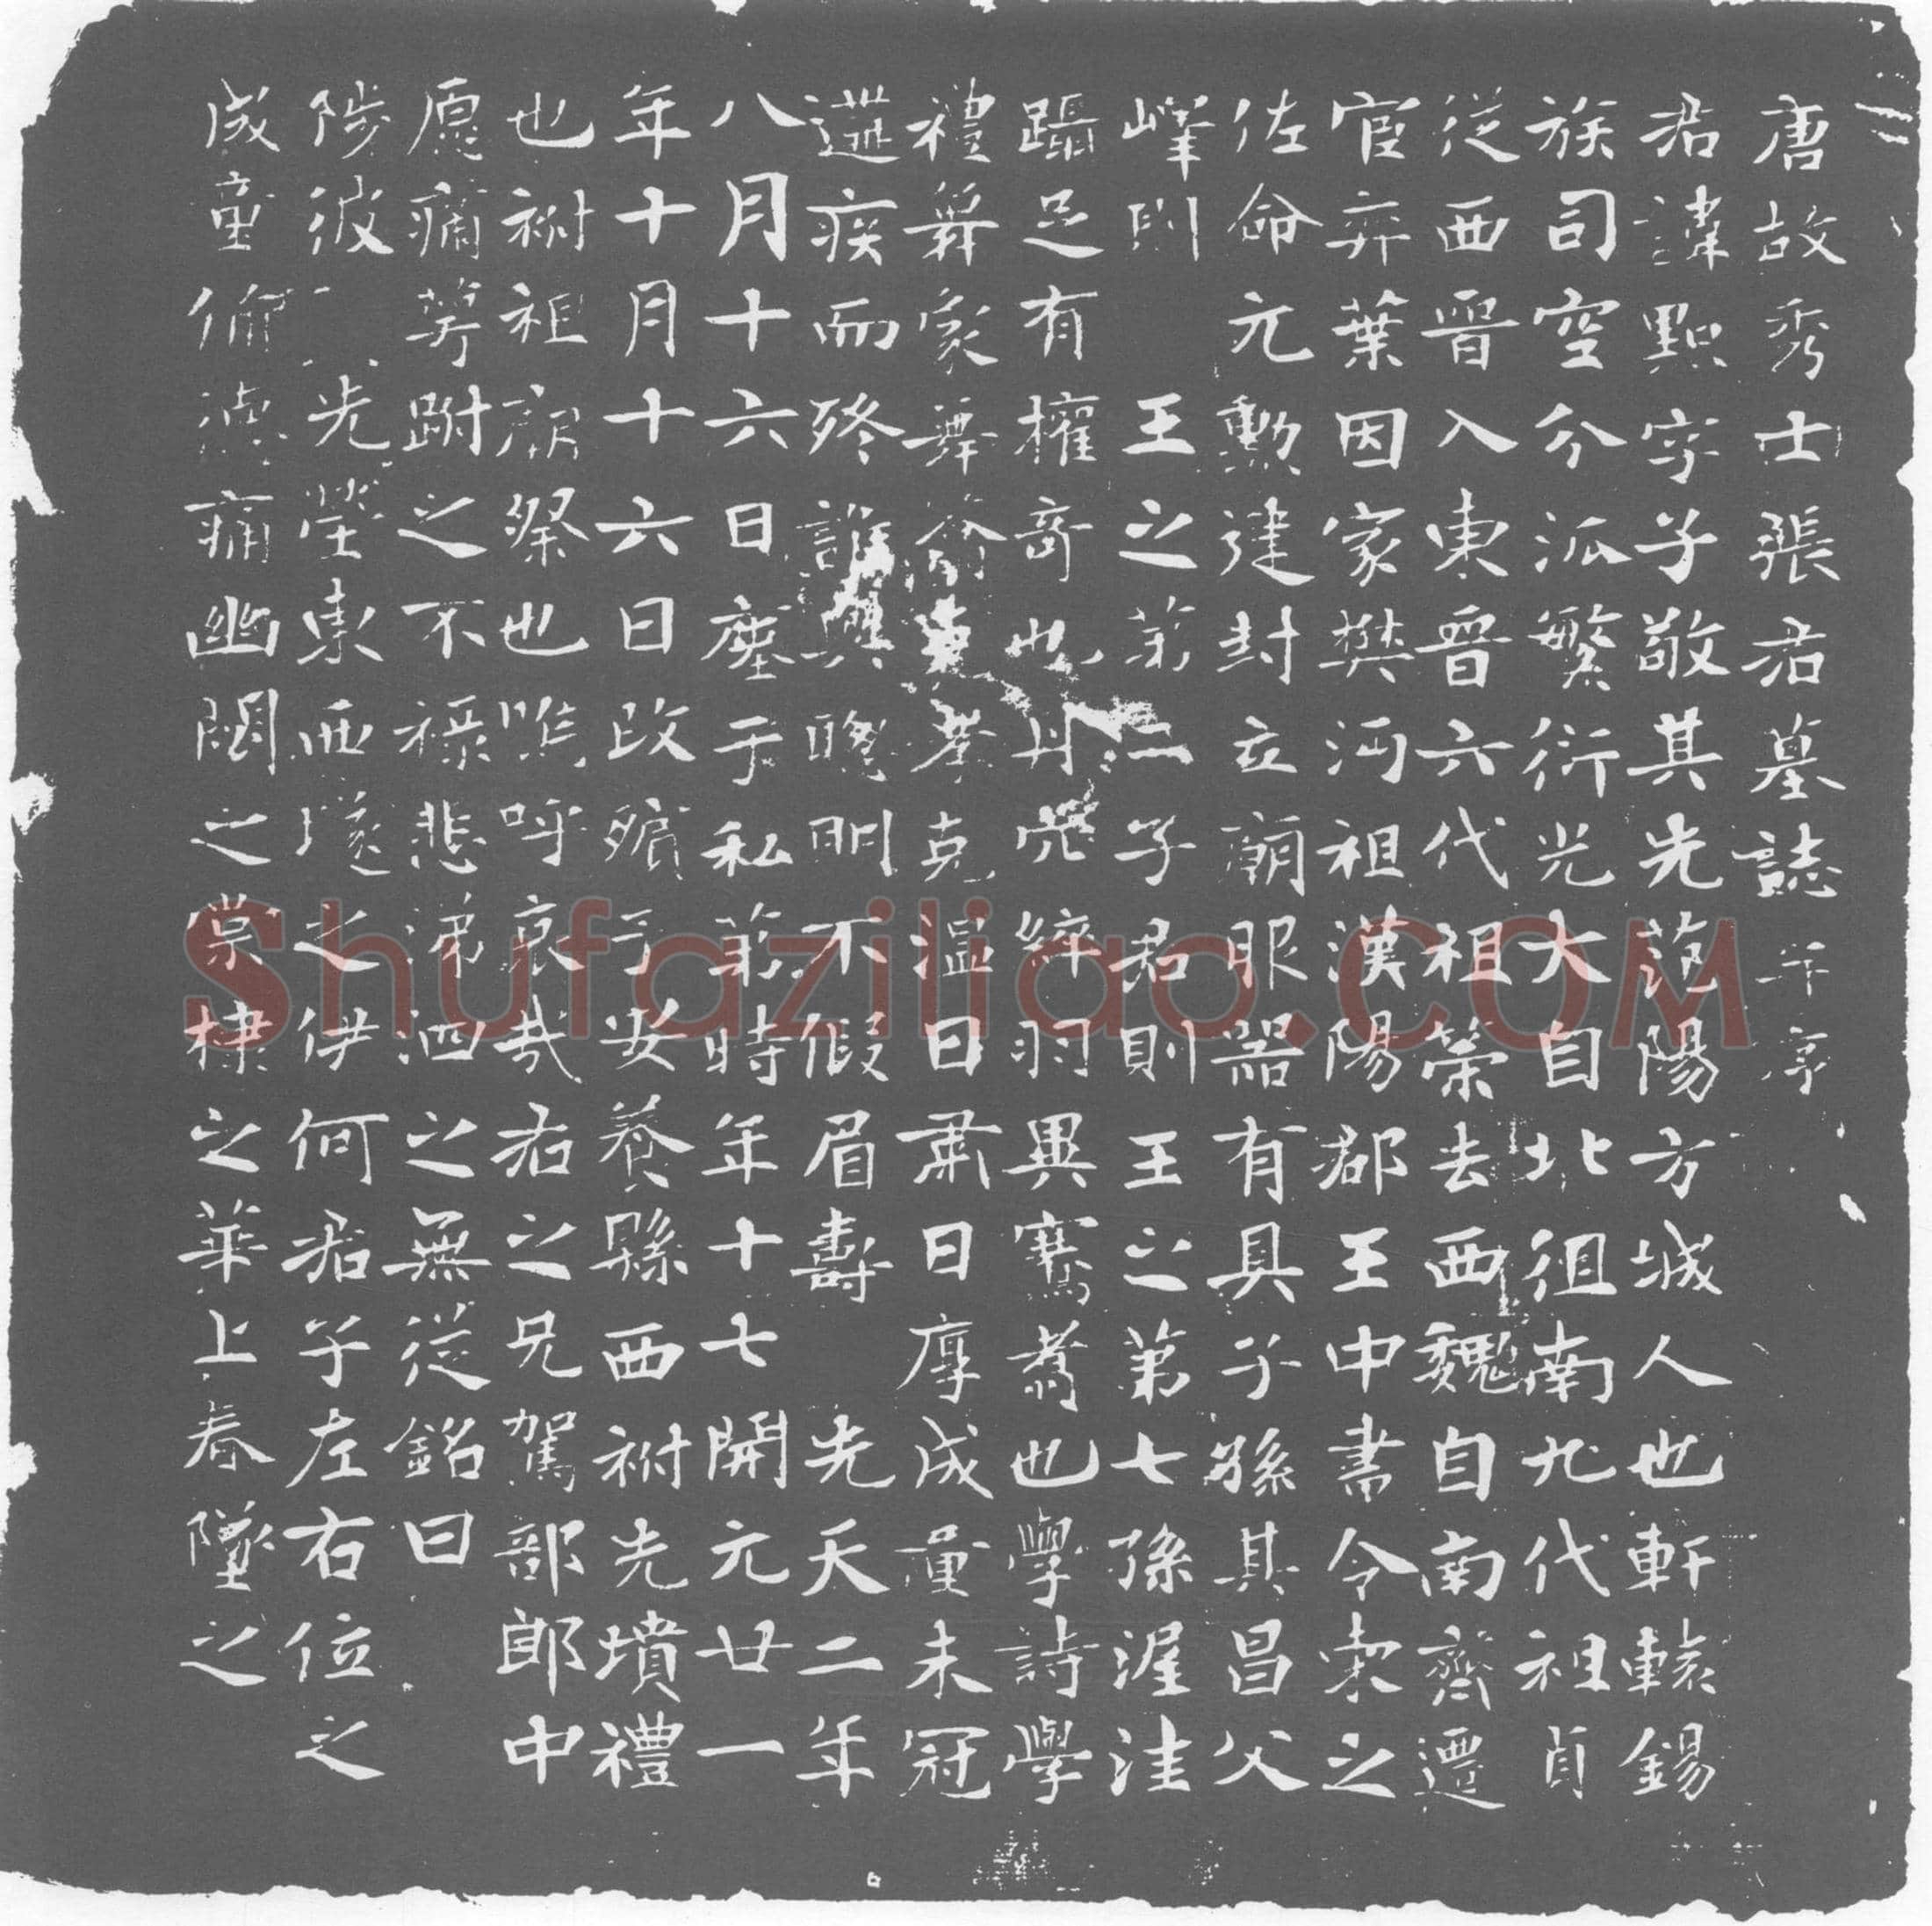 唐故秀士張君墓誌并序
君諱點字子敬其先范陽方城人也軒轅錫
族司空分派繁衍光大自北徂南九代祖貞
從西晉入東晉六代祖策去西魏自南齊遷
宦弈葉因家樊沔祖漢陽郡王中書令柬之
佐命元勳建封立廟服器有具子孫其昌父
嶧則王之第二子君則王之第七孫渥洼
躡足有權奇也丹穴綷羽異騫翥也學詩學
禮昇家克溫日肅日厚成童未冠
遘疾而終誰興聰明不假眉壽先天二年
八月十六日塵于私第時年十七開元廿一
年十月十六日改殯于安養縣西祔先墳禮
也祔祖祭也嗚呼哀哉君之兄駕部郎中
愿痛萼跗之不祿悲涕泗之無從銘曰
陟彼先塋東西隧之伊何君子左右位之
成童備德痛幽閟之棠棣之華上春墜之
Shufaziliao.COM